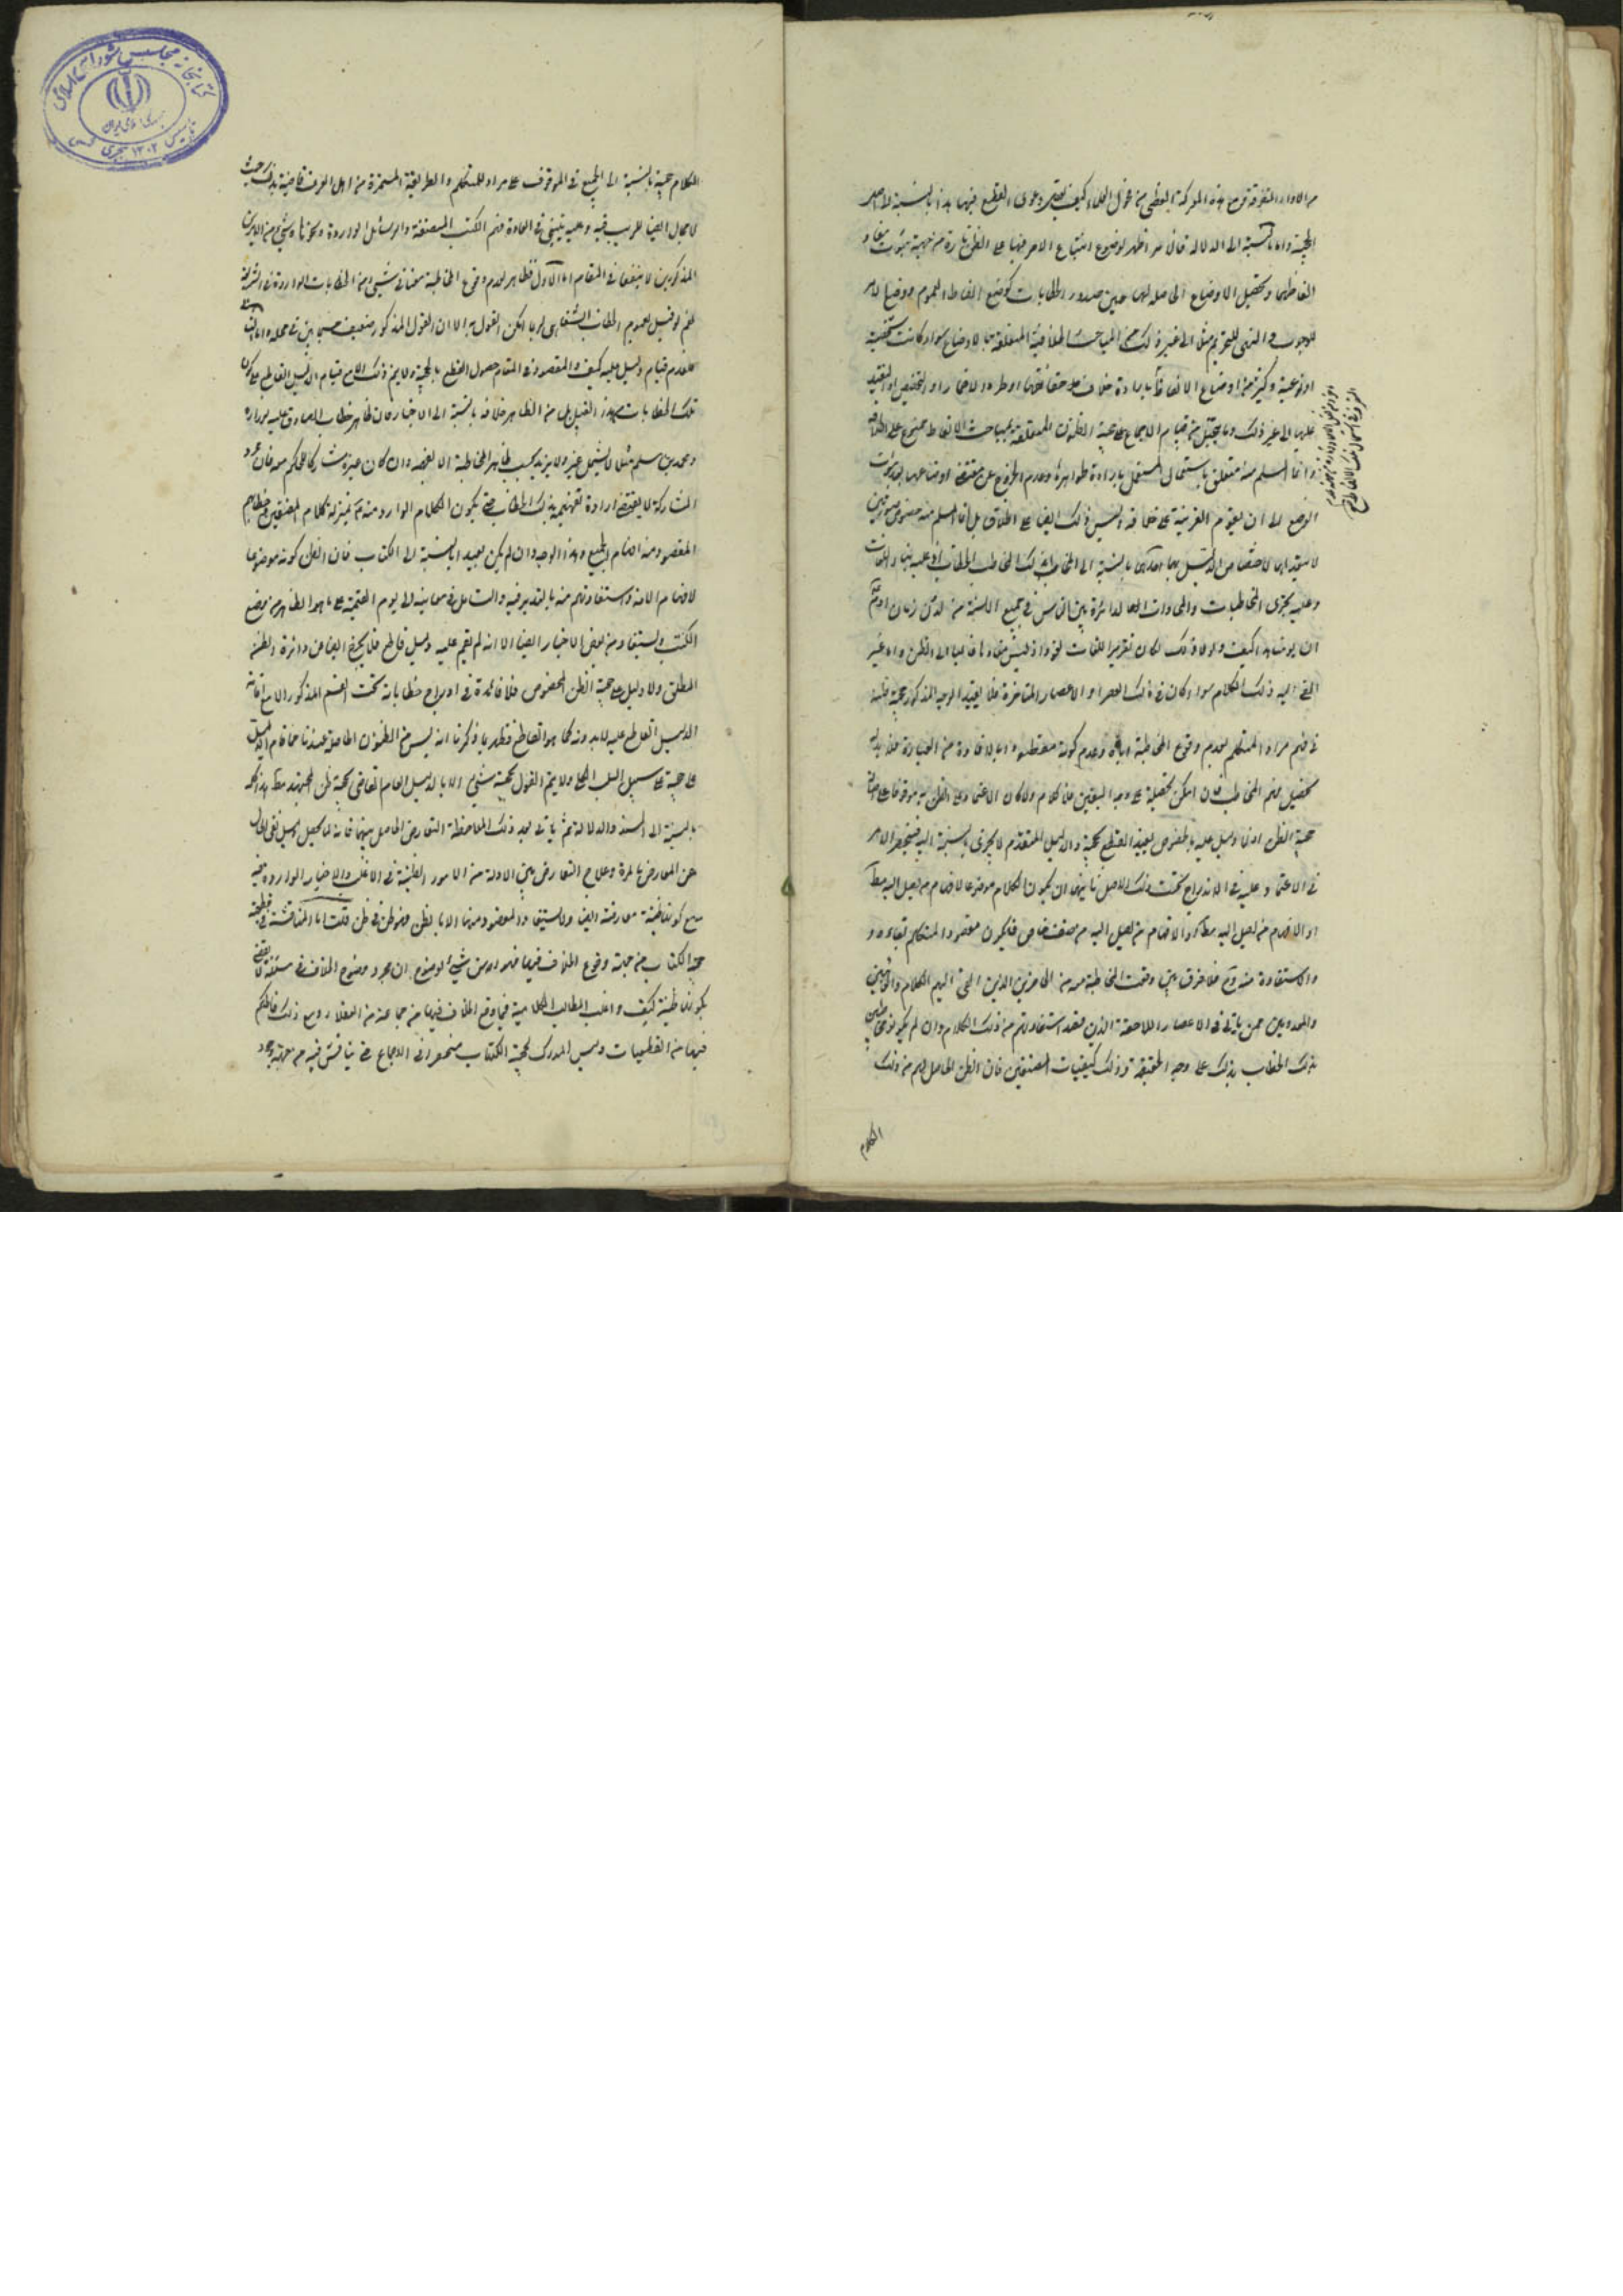 من الآراء المتفرقة مع هذه المعركة العظمى من فحول العلماء كيف يصح دعوى القطع فيها هذا بالنسبة لاصل
الحجية واما بالنسبة الى الدلالة فان من اظهر لوضوح ابتناء الامر فيها على الظن تارة من جهة ثبوت مفاد
الفاظها وتحصيل الاوضاع الحاصلة لها حين صدور الخطابات كوضع الفاظ العموم ووضع الامر
للوجوب والنهى للتحريم مثلا الى غير ذلك من المباحث الخلافية المتعلقة بالاوضاع سواء كانت شخصية
او نوعية وكثير من اوضاع الالفاظ
عليها الى غير ذلك وما يتخيل من قيام الاجماع على حجية الظنون المتعلقة بمباحث الالفاظ ممنوع على اطلاقه
وانما المسلم منه ما يتعلق باستعمال المستعمل بارادة ظواهره وعدم الخروج عن مقتضى اوضاعها بعد ثبوت
الوضع الى ان يقوم القرينة على خلافه وليس ذلك ايضا على اطلاقه بل انما المسلم منه خصوص صورتين
لا يتعداهما لاختصاص الدليل بهما احدهما بالنسبة الى المخاطب بذلك الخطاب
وعليه يجرى المخاطبات والمحاورات الدائرة بين الناس فى جميع الالسنة من لدن زمان آدم
ان يومنا هذا كيف ولولا ذلك لكان تقرير اللغات لغوا اذ ليس مفادها غالبا الا الظن واما غير
الملقى اليه ذلك الكلام سواء كان فى ذلك العصر او الاعصار المتاخرة فلا يفيد الوجه المذكور حجية ظنه
فى فهم مراد المتكلم لعدم وقوع المخاطبة اياه وعدم كونه مقصودا بالافادة من العبارة فلا بد له
تحصيل فهم المخاطب فان امكن تحصيله على وجه اليقين فلا كلام والا كان الاعتماد على الظن به موقوفا على
حجية الظن اذ لا دليل عليه بالخصوص يفيد القطع بحجيته والدليل المتقدم لا يجرى بالنسبة اليه فينحصر الامر
فى الاعتماد عليه فى الاندراج تحت ذلك الاصل ثانيهما ان يكون الكلام موضوعا لافهام من يصل اليه مطلقا
او لافهام من يصل اليه من صنف خاص فيكون مقصود المتكلم بقاءه و
والاستفادة منه وح فلا فرق بين وقعت المخاطبة معه من الحاضرين الذين القى اليهم الكلام والغائبين
والمعدومين ممن ياتى فى الاعصار اللاحقة الذين قصد استفادتهم من ذلك الكلام وان لم يكونوا مخاطبين
بذلك الخطاب بذلك على وجه الحقيقة وذلك كتصنيفات المصنفين فان الظن الحاصل لهم من ذلك
الكلام
الكلام حجة بالنسبة الى الجميع فى الوقوف على مراد المتكلم والطريقة المستمرة من اهل العرف قاضية بذلك حيث
لا مجال ايضا للريب فيه وعليه يبتنى فى العادة فهم الكتب المصنفة والرسائل الواردة ونحوها وشئ من الامرين
المذكورين لا ينفعنا فى المقام اما الاول فظاهر لعدم وقوع المخاطبة معنا فى شئ من الخطابات الواردة فى الشريعة
نعم لو قيل بعموم الخطاب الشفاهى لربما امكن القول به الا ان القول المذكور ضعيف حسبما بين فى محله واما الثانى
فلعدم قيام دليل عليه كيف والمقصود فى المقام حصول القطع بالحجية ولا يتم ذلك الا مع قيام الدليل القاطع على كون
تلك الخطابات من هذا القبيل بل من الظاهر خلافه بالنسبة الى الاخبار فان ظاهر خطاب الصادق عليه السلام لزرارة
ومحمد بن مسلم مثلا لا يشمل غيره ولا يزيد بحسب ظاهر المخاطبة الا لغيره وان كان غيره مشاركا للحكم معه فان مجرد
المشاركة لا يقتضى ارادة تفهيمه بذلك الخطاب حتى يكون الكلام الوارد منه بمنزلة كلام المصنفين
المقصود منه افهام الجميع وهذا الوجه وان لم يكن بعيدا بالنسبة الى الكتاب فان الظن كونه موضوعا
لافهام الامة واستفادتهم منه بالتدبر فيه والتامل فى معانيه الى يوم القيمة على ما هو الظاهر من وضع
الكتب ويستفاد من بعض الاخبار ايضا الا انه لم يقم عليه دليل قاطع فلا يخرج ايضا عن دائرة الظن
المطلق ولا دليل على حجية الظن المخصوص فلا فائدة فى ادراج خطاباته تحت القسم المذكور الا مع اقامة
الدليل القاطع عليه لا بدونه كما هو الواضح فظهر بما ذكرنا انه ليس من الظنون الحاصلة عندنا ما قام الدليل
على حجيته على سبيل السلب الكلى ولا يتم القول بحجية شئ الا بالدليل العام القاضى بحجية ظن المجتهد مطلقا هذا كله
بالنسبة الى السند والدلالة ثم ياتى بعد ذلك ملاحظة التعارض الحاصل بينها فانه لا يحصل دليل نقلى خال
عن المعارض بالمرة وعلاج التعارض بين الادلة من الامور الظنية فى الاغلب والاخبار الواردة فيه
مع كونها ظنية معارضة ايضا ولا يستفاد المقصود منها الا بالظن فهو ظن فى ظن قلت اما المناقشة فى قطعية
حجية الكتاب من جهة وقوع الخلاف فيها فهو اوهن شئ لوضوح ان مجرد وقوع الخلاف فى مسئلة لا يقضى
بكونها ظنية كيف واغلب المطالب الكلامية مما وقع الخلاف فيها من جماعة من العقلاء ومع ذلك فالحكم
فيها من القطعيات وليس المدرك لحجية الكتاب منحصرا فى الاجماع حتى يناقش فيه من جهة وجود